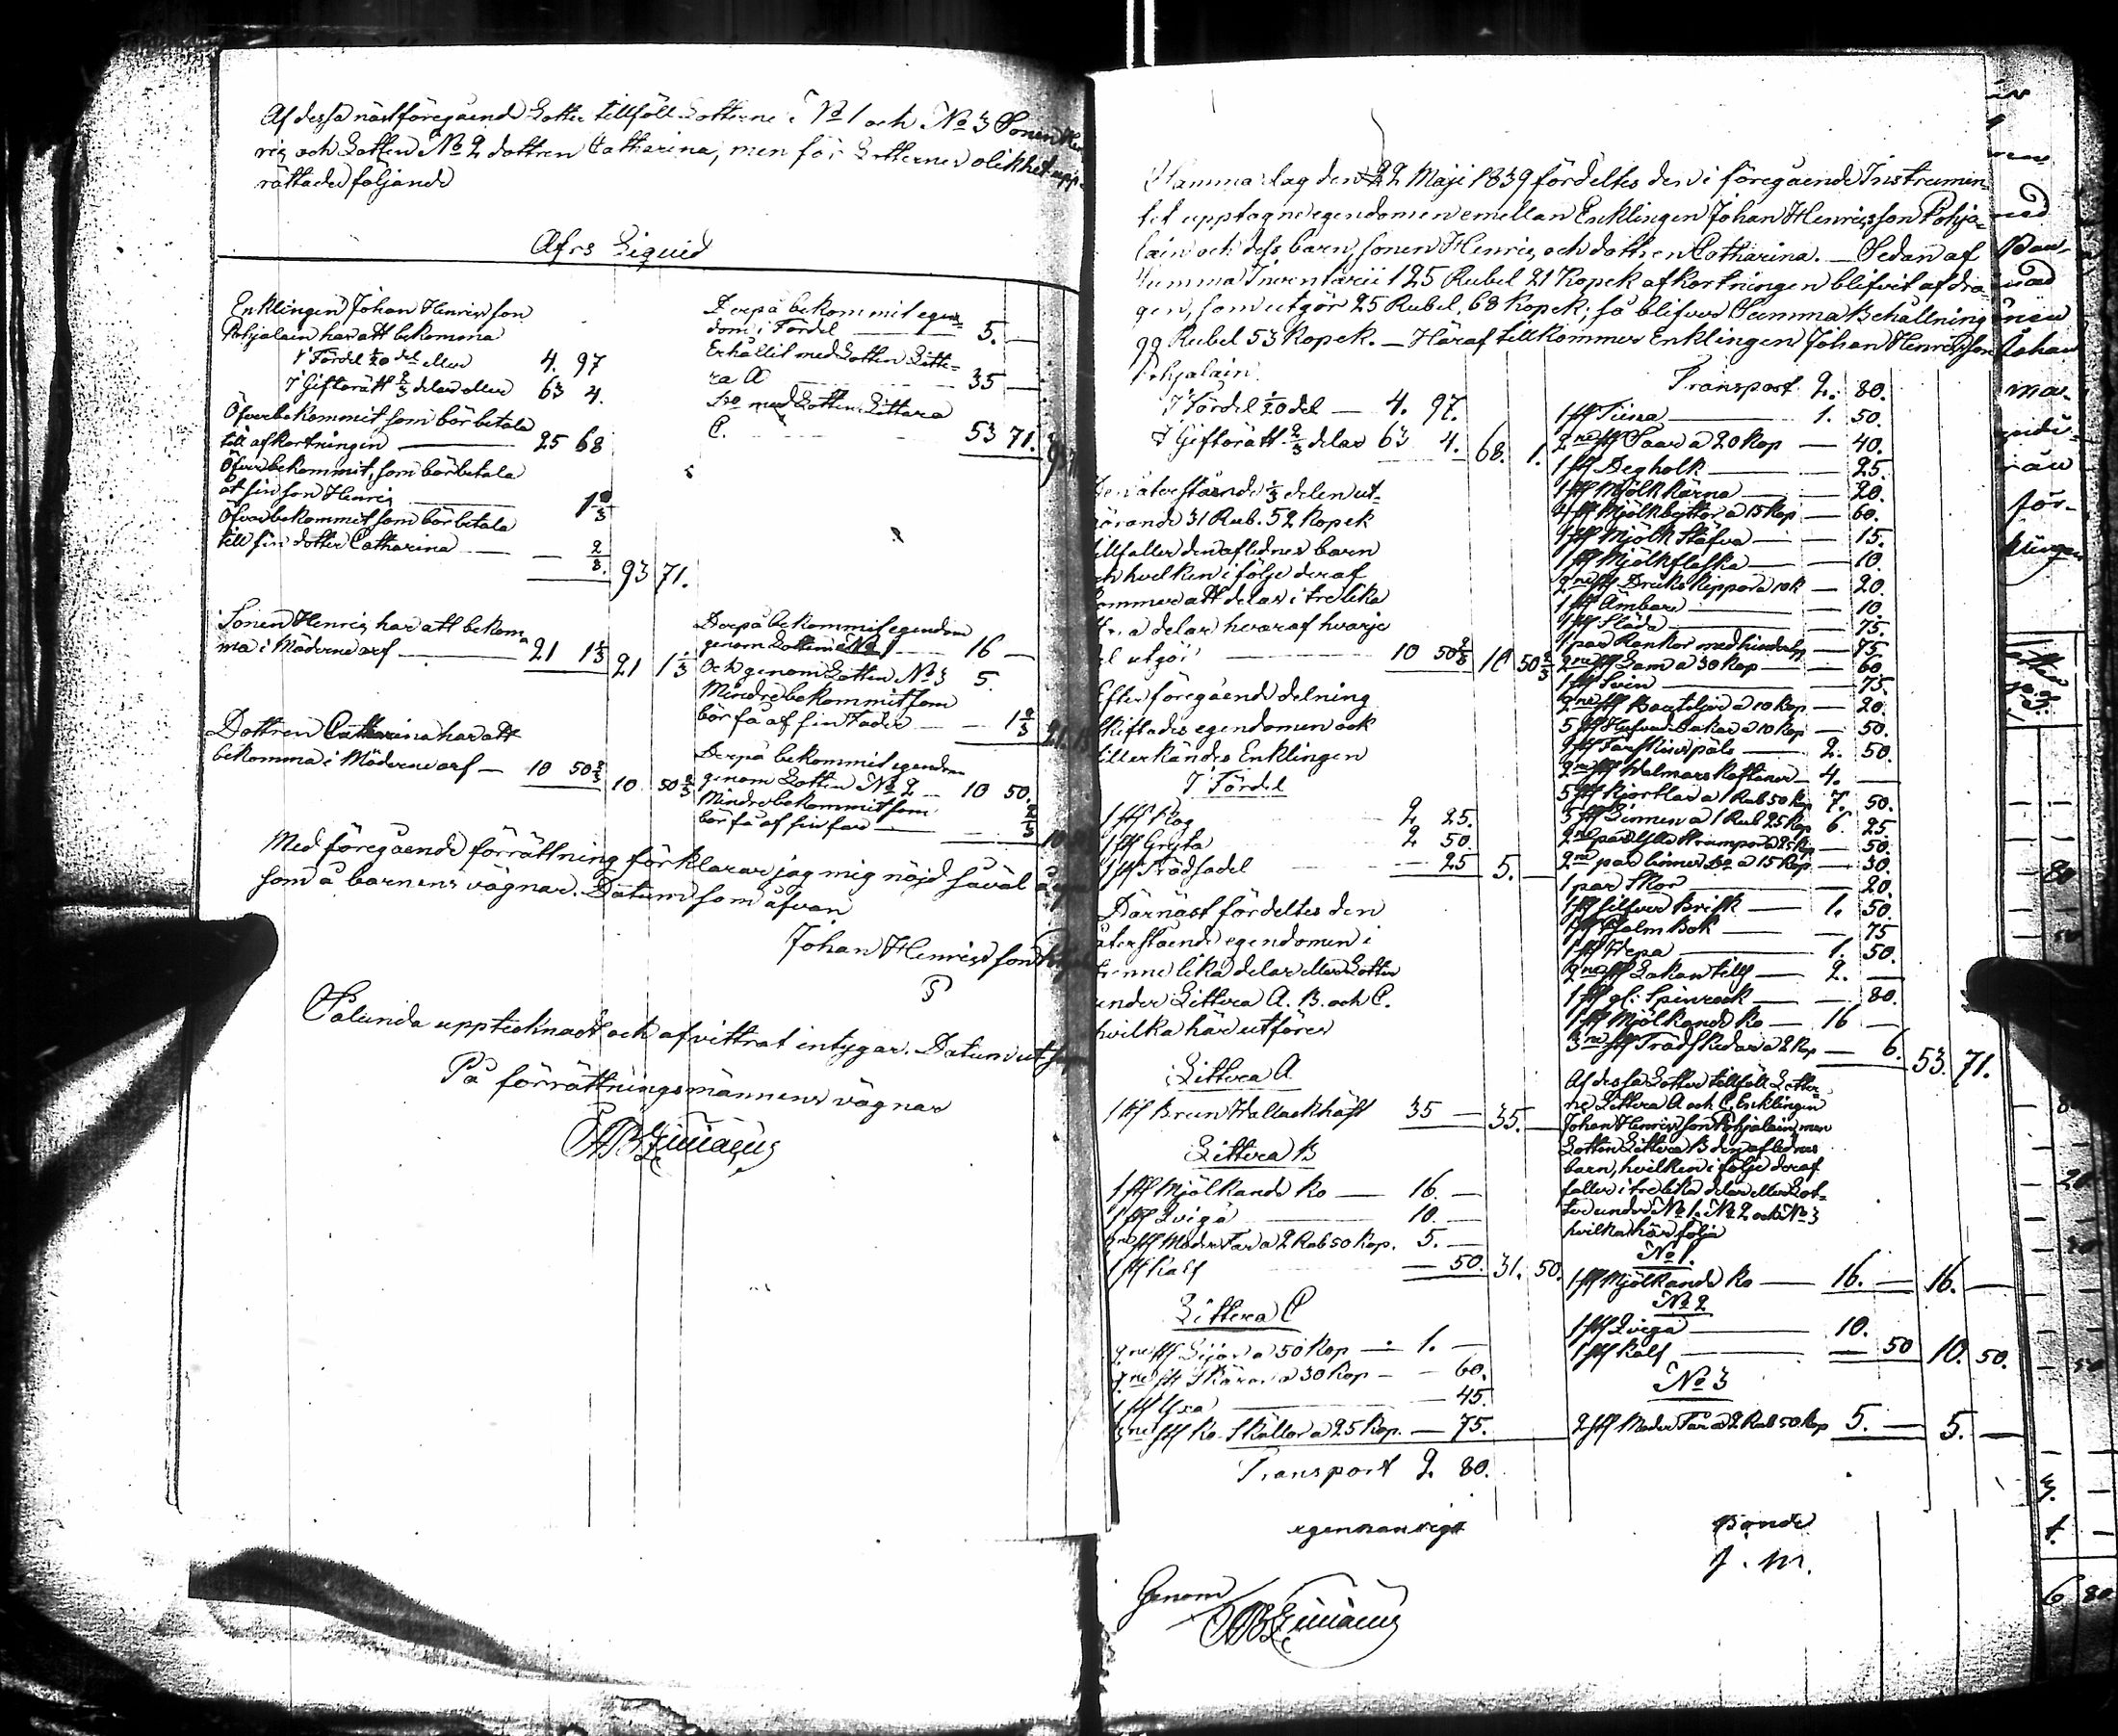 Af dessa nästföregående Lotter tillföll Lotterne N:o 1 och N:o 3 Sonen Hen
ric, och Lotten N:o 2 dottren Catharina, men för Lotternes olikhet upp-
rättades följande
Afrs Liquid
Enklingen Johan Henricsson
Pohjalain har att bekomma
i Fördel 1/20 del eller 4. 97
i Giftorätt 2/3 delar eller 63 4.
Öfverbekommit som bör betala
till afkortningen 25 68
Öfverbekommit, som bör betala
åt sin son Henric 1 2/3
Öfverbekommit som bör betala
till sin dotter Catharina — 2/3. 93 71.
Sonen Henric har att bekom
ma i Möderne arf — 21 1 1/3 21 1 1/3
Dottren Catharina har att
bekomma i Möderne arf — 10 50 2/3 10 50 2/3
Derpå bekommit egen-
dom i Fördel — 5. —
Erhållit med Lotten Litte-
ra A — 35 —
D:o med Lotten Littera
C. — 53 71.
Derpå bekommit egendom
genom Lotten N:o 1 — 16 —
Och genom Lotten N:o 3 5.
Mindre bekommit som
bör få af sin Fader — 1 2/3
Derpå bekommit egendom
genom Lotten N:o 2 — 10 50.
Mindre bekommit som
bör få af sin far — 2/3
Med föregående förrättning förklarar jag mig nöjd såväl å egna
som å barnens vägnar. Datum som åfvan
Johan Henricsson
Sålunda upptecknadt och afvittrat intygar. Datum ut supra
På förrättningsmännens vägnar
Samma dag den 22 Maji 1839 fördeltes den i föregående Instrumen-
tet upptagne egendomen emellan Enklingen Johan Henricsson Pohja-
lain och dess barn, sonen Henric, och dottren Catharina. — Sedan af
Summa Inventarii 125 Rubel 21 Kopek afkortningen blifvit afdra-
gen, som utgör 25 Rubel, 68 Kopek; så blifver Summa Behållning
99 Rubel 53 Kopek. — Häraf tillkommer Enklingen Johan Henricsson
Pohjalain.
I Fördel 1/20 del — 4. 97.
I Giftorätt 2/3 delar 63 4. 68. 1.
Den återstående 1/3 delen ut-
görande 31 Rub. 52 Kopek
tillfaller den aflednes barn
och hvilken i följe deraf
kommer att delas i tre lika
delar hvaraf hvarje
del utgör — 10 50 2/3 10 50 2/3
Efter föregående delning
skiftades egendomen och
tillerkändes Enklingen
I Fördel
1 st Plog 2 25.
1 st Gryta 2 50.
1 st Trädsadel — 25 5. —
Därnäst fördeltes den
återstående egendomen i
trenne lika delar eller Lotter
under Littera A. B. och C.
hvilka här utföres
Littera A
1 st Brun Wallackhäst 35 — 35. —
Littera B
1 st Mjölkande Ko — 16. —
1 st Qviga 10. —
2ne st Moder Får a 2 Rub 50 Kop. 5. —
1 st Kalf — 50. 31. 50.
Littera C
2ne st Lijor a 50 Kop — 1. —
2ne st Skäror a 30 Kop — 60.
1 st Yxa — 45.
3ne st Ko Skällor a 25 Kop. — 75.
Transport 2. 80.
Transport 2. 80.
1 st Tiena — 1. 50.
2ne st Saar a 20 Kop — 40.
1 st Degholk — 25.
1 st Mjölk kärna — 20.
4 st Mjölkbyttor a 15 Kop — 60.
1 st Mjölk Stäfva — 15.
1 st Mjölkflaska — 10.
2ne st Dricks kippor a 10 k — 20.
1 st Ämbare — 10.
1 st Släda — 75.
1 par Rankor med hinder — 75
2ne st Lam a 30 Kop — 60.
1 st Svin — 75.
2ne st Bouteljer a 10 Kop — 20.
5 st Hufvud Dukar a 10 Kop — 50.
1 st Fårskinspäls — 2. 50.
2ne st Walmars Kaftaner — 4. —
5 st Kjortlar a 1 Rub 50 Kop 7. 50.
5 st Linnen a 1 Rub 25 Kop 6. 25
2ne par Ylle Strumpor a 25 Kop — 50.
2ne par linnes D:o a 15 Kop — 30.
1 par Skor — 20.
1 st silfver Brisk — 1. 50.
1 st Psalm Bok — 75
1 st Wepa — 1. 50.
2ne st Lakan — 2. —
1 st gl: Spinrock — 80.
1 st Mjölkande Ko — 16 —
3ne st Trädskedar a 2 Kop — 6. 53. 71.
Af dessa Lotter tillföll Lotter
ne Littera A och C. Enklingen
Johan Henricsson Pohjalain, men
Lotten Littera B den aflednes
barn, hvilken i följe deraf
faller i tre lika delar eller Lot-
ter under N:o 1. N:o 2 och N:o 3
hvilka här följa
N:o 1.
1 st Mjölkande Ko — 16. — 16. —
N:o 2
1 st Qviga — 10.
1 st Kalf — 50 10. 50.
N:o 3
2 st Moder Får a 2 Rub 50 Kop 5. — 5. —
egenhändigt
Bonde
Genom